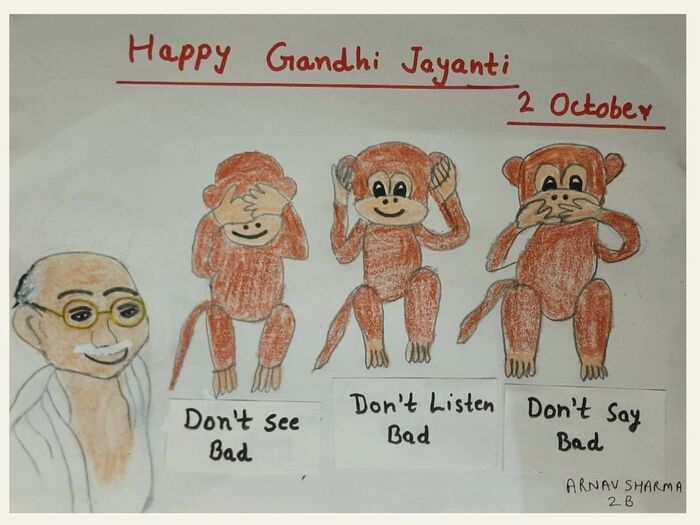 Happy Gandhi Jayanti
2 October
Don't See
Bad
Don't Listen
Bad
Don't Say
Bad
ARNAV SHARMA
2B